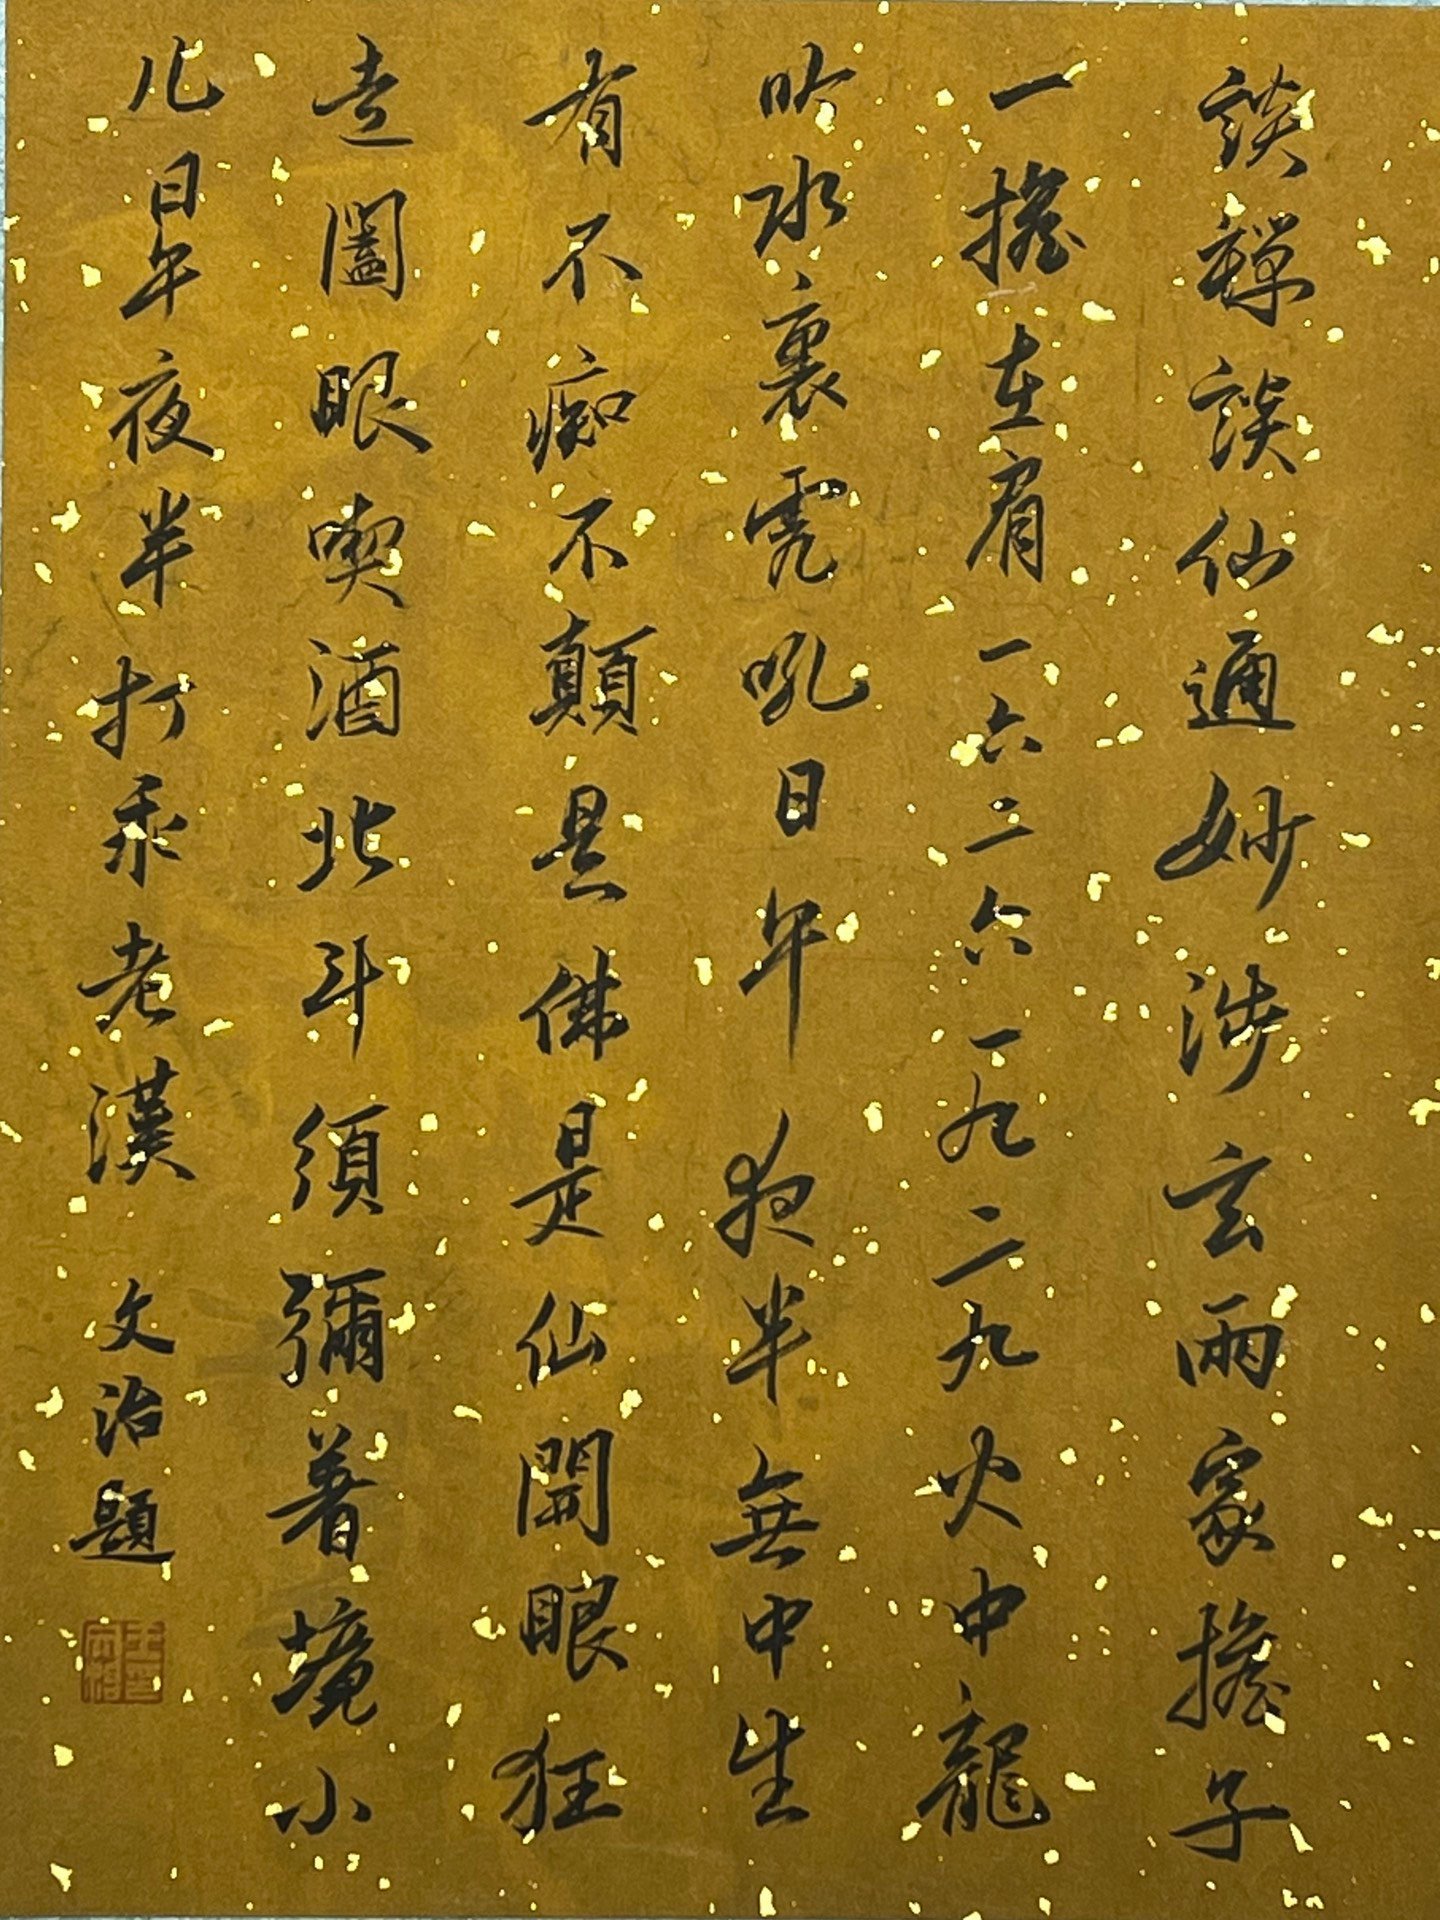 談禪談仙通妙涉玄兩家擔子
一擔在肩一六二六一九二九火中龍
吟水裏虎吼日午夜半無中生
有不痴不顛是佛是仙開眼狂
走闔眼喫酒北斗須彌著境小
兒日午夜半打乖老漢 文治題